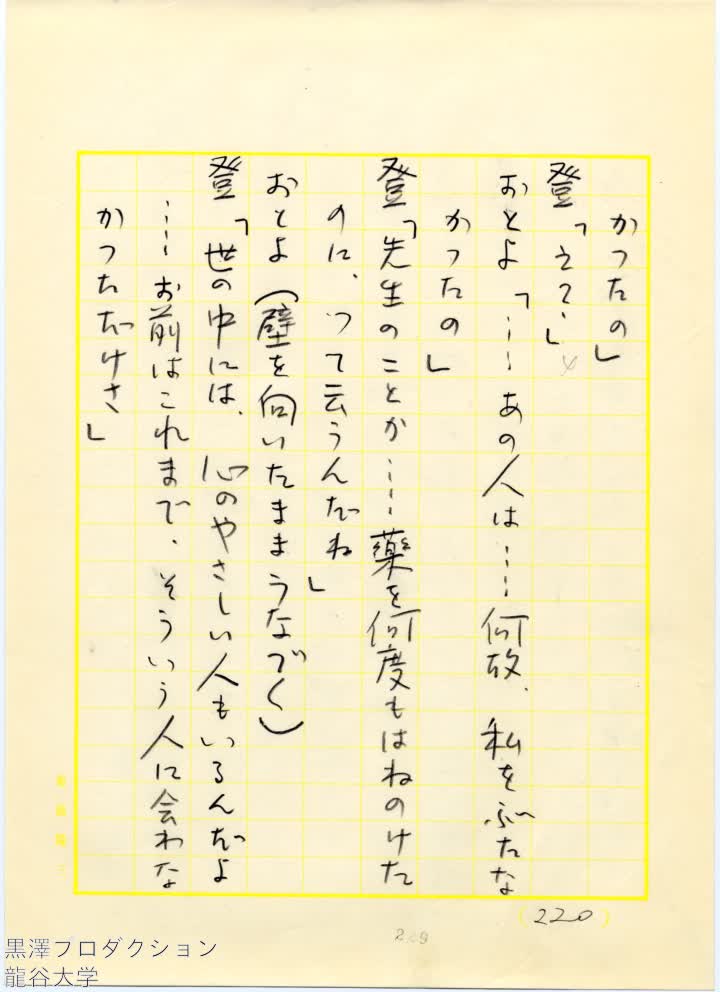 かつたの」
登「え？」
おとよ「……あの人は……何故、私をぶたな
かつたの」
登「先生のことか……薬を何度もはねのけた
のに、つて云うんだね」
おとよ（壁を向いたままうなづく）
登「世の中には、心のやさしい人もいるんだよ
……お前はこれまで、そういう人に会わな
かつただけさ」
(220)
黒澤プロダクション
龍谷大学